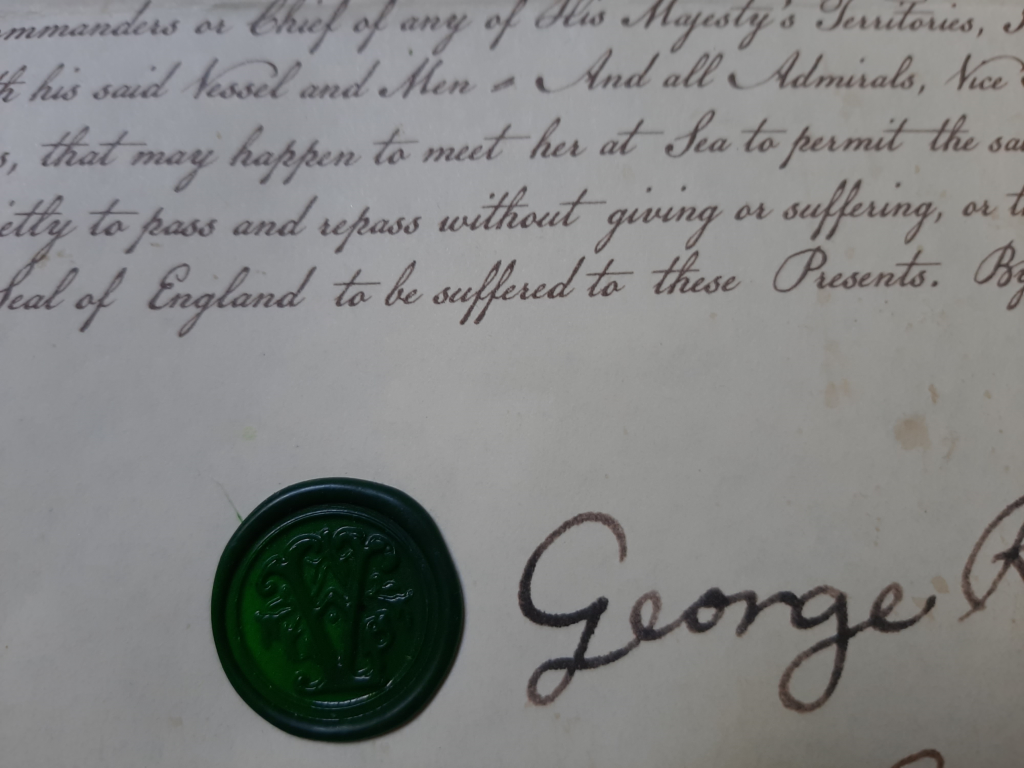 ommanders or Chief of any of His Majesty's Territories,
th his said Vessel and Men - And all Admirals, Vice
s, that may happen to meet her at Sea to permit the sa
ietly to pass and repass without giving or suffering, or t
Seal of England to be suffered to these Presents. By
George R